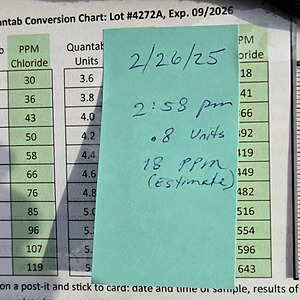 ntab Conversion Chart: Lot #4272A, Exp. 09/2026
PPM Chloride Quantab Units
30 3.6 18
36 3.8 41
43 4.0
50 4.2 392
58 4.4 419
66 4.6 449
76 4.8 482
85 5.0 516
96 5. 554
107 5. 596
119 5. 643
2/26/25
2:58 pm
.8 Units
18 PPM
(Estimate)
on a post-it and stick to card: date and time of sample, results of